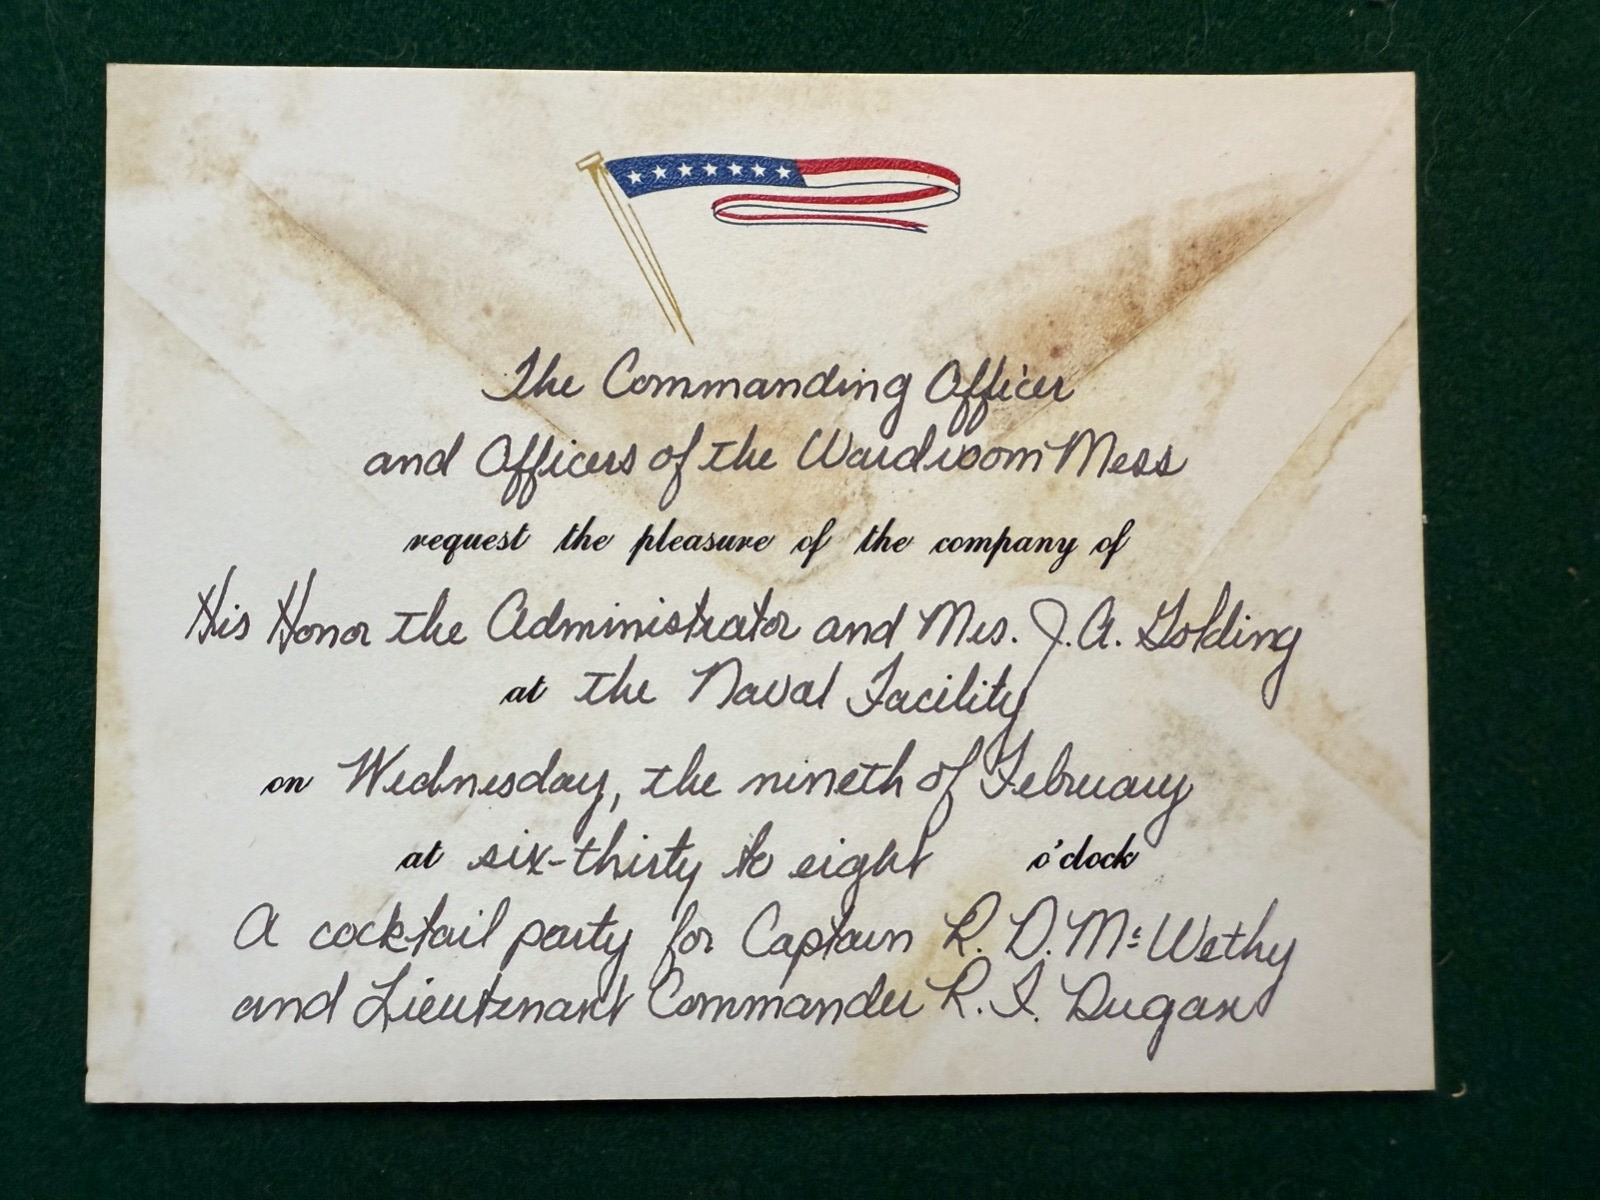 The Commanding Officer
and Officers of the Wardroom Mess
request the pleasure of the company of
His Honor the Administrator and Mrs. J. A. Golding
at the Naval Facility
on Wednesday, the nineth of February
at six-thirty to eight o'clock
A cocktail party for Captain R. D. Mc Wethy
and Lieutenant Commander R. I. Dugan